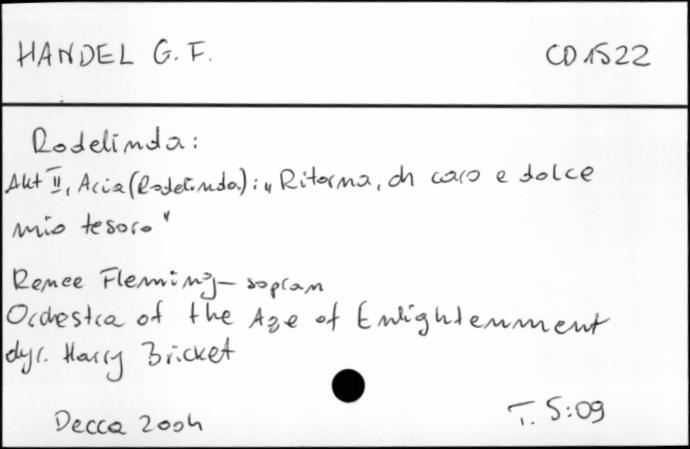 HANDEL G.F. CD 1522
Rodelinda:
Akt II, Aria (Rodelinda): „Ritorna, oh caro e dolce
mio tesoro"
Renee Fleming – sopran
Orchestra of the Age of Enlightenment
dyr. Harry Bricket
Decca 2004 T. 5:09